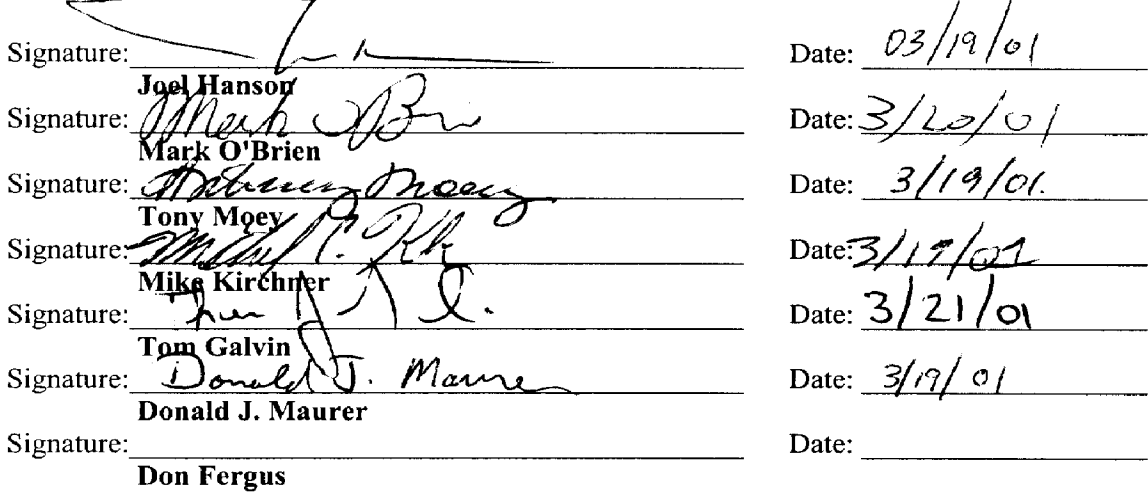 Signature: Date: 03/19/01
Joel Hanson
Signature: Mark O'Brien Date: 3/20/01
Mark O'Brien
Signature: Anthony Moey Date: 3/19/01.
Tony Moey
Signature: Date: 3/19/01
Mike Kirchner
Signature: Date: 3/21/01
Tom Galvin
Signature: Donald J. Maurer Date: 3/19/01
Donald J. Maurer
Signature: Date:
Don Fergus